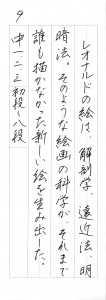 9
レオナルドの絵は、解剖学、遠近法、明
暗法、そのような絵画の科学が、それまで
誰も描かなかった新しい絵を生み出した。
中一・二・三 初段〜八段